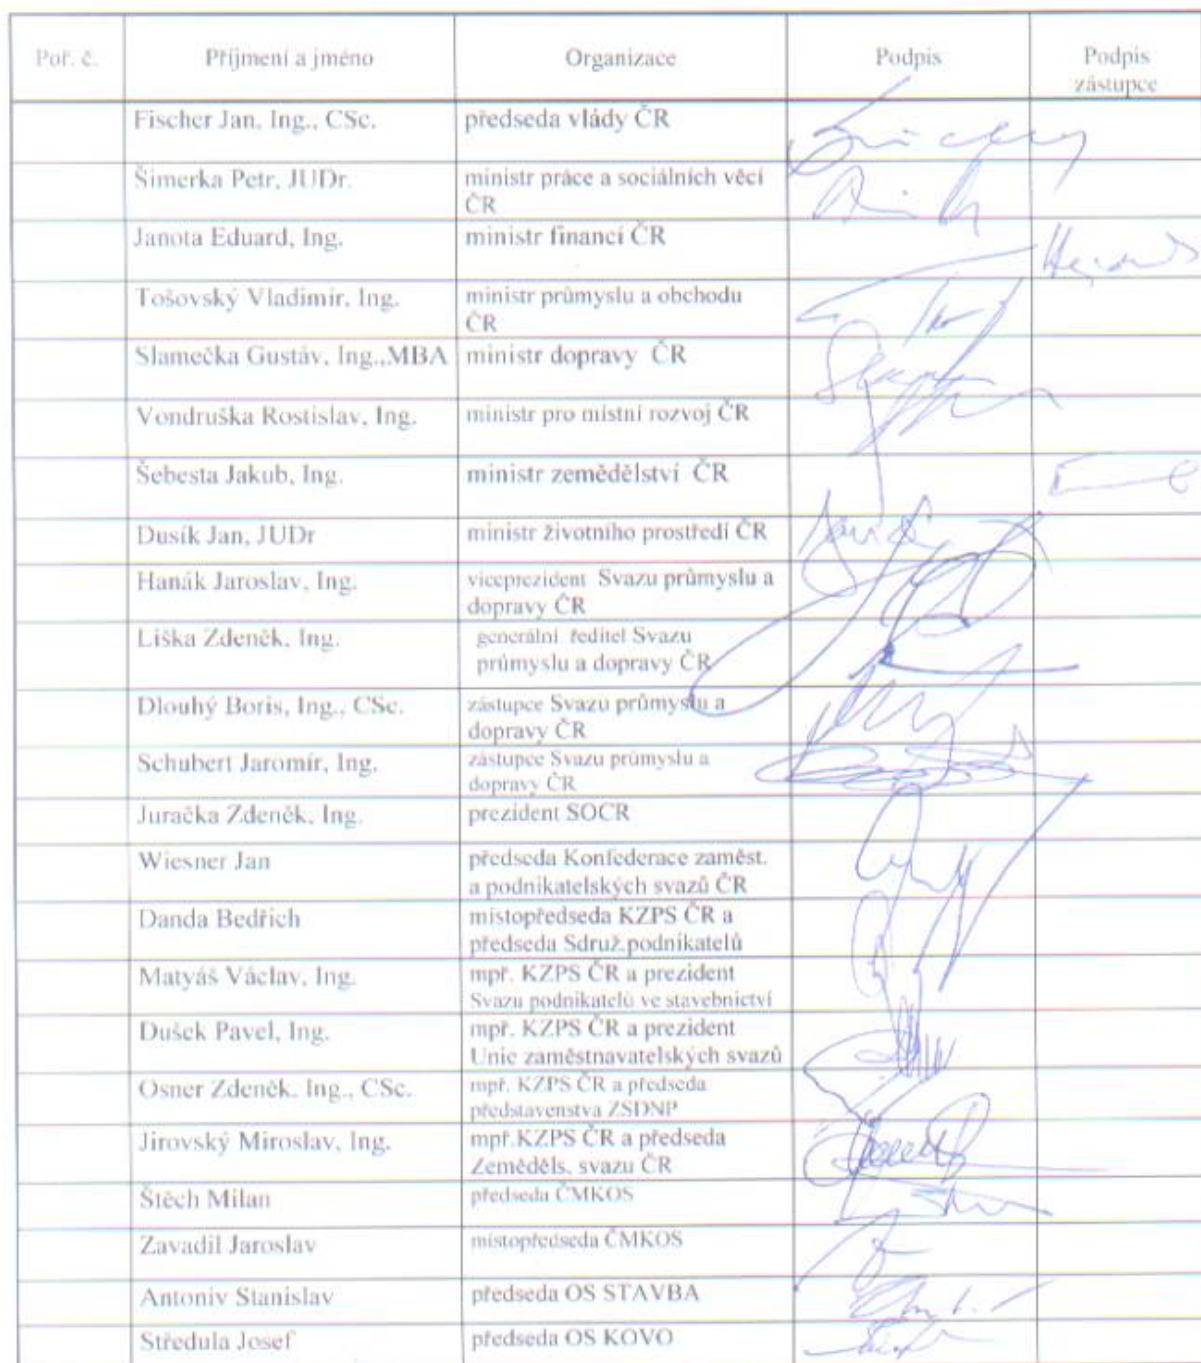 Poř. č. Příjmení a jméno Organizace Podpis Podpis
zástupce
Fischer Jan, Ing., CSc. předseda vlády ČR
Šimerka Petr, JUDr. ministr práce a sociálních věcí
ČR
Janota Eduard, Ing. ministr financí ČR
Tošovský Vladimír, Ing. ministr průmyslu a obchodu
ČR
Slamečka Gustáv, Ing.,MBA ministr dopravy ČR
Vondruška Rostislav, Ing. ministr pro místní rozvoj ČR
Šebesta Jakub, Ing. ministr zemědělství ČR
Dusík Jan, JUDr ministr životního prostředí ČR
Hanák Jaroslav, Ing. viceprezident Svazu průmyslu a
dopravy ČR
Liška Zdeněk, Ing. generální ředitel Svazu
průmyslu a dopravy ČR
Dlouhý Boris, Ing., CSc. zástupce Svazu průmyslu a
dopravy ČR
Schubert Jaromír, Ing. zástupce Svazu průmyslu a
dopravy ČR
Juračka Zdeněk, Ing. prezident SOCR
Wiesner Jan předseda Konfederace zaměst.
a podnikatelských svazů ČR
Danda Bedřich místopředseda KZPS ČR a
předseda Sdruž.podnikatelů
Matyáš Václav, Ing. mpř. KZPS ČR a prezident
Svazu podnikatelů ve stavebnictví
Dušek Pavel, Ing. mpř. KZPS ČR a prezident
Unie zaměstnavatelských svazů
Osner Zdeněk, Ing., CSc. mpř. KZPS ČR a předseda
představenstva ZSDNP
Jirovský Miroslav, Ing. mpř.KZPS ČR a předseda
Zeměděls. svazu ČR
Štěch Milan předseda ČMKOS
Zavadil Jaroslav místopředseda ČMKOS
Antoniv Stanislav předseda OS STAVBA
Středula Josef předseda OS KOVO